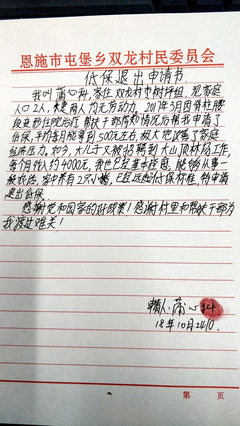 恩施市屯堡乡双龙村民委员会
低保退出申请书
我叫蒲心和,家住双龙村中树坪组,现家庭
人口2人,夫妻两人均无劳动力,2017年3月因脊柱腰
段变形住院治疗,帮扶干部得知情况后帮我申请了
低保,平均每月能拿到500元左右,极大地改善了家庭
经济压力。如今,大儿子又被招聘到大山顶林场工作,
每个月收入约4000元,我也已经基本痊愈,能够从事一
般农活,家中养有2只小猪,已经远超低保标准,特申请
退出低保。
感谢党和国家的好政策!感谢村里和帮扶干部为
我渡过难关!
申请人:蒲心
18年10月24日
第 页